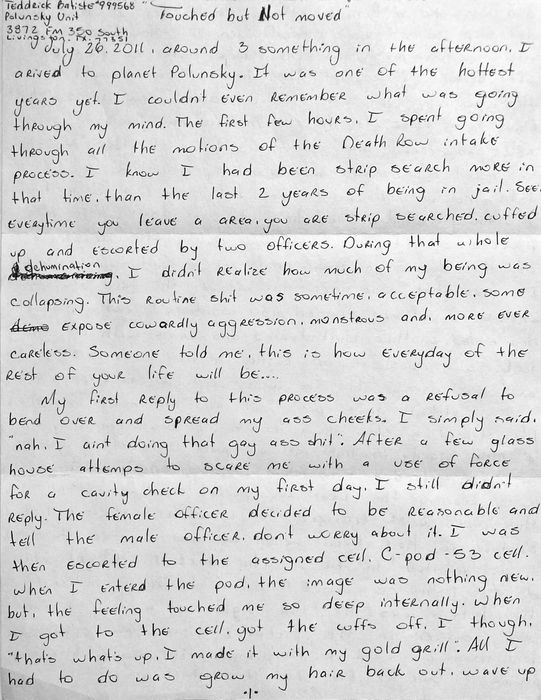 Teddrick Batiste #999568 "Touched but Not moved"
Polunsky Unit
3872 FM 350 South
Livingston. TX. 77351
July 26. 2011, around 3 something in the afternoon. I
arived to planet Polunsky. It was one of the hottest
years yet. I couldnt even remember what was going
through my mind. The first few hours. I spent going
through all the motions of the Death Row intake
process. I know I had been strip search more in
that time. than the last 2 years of being in jail. See.
Everytime you leave a area, you are strip searched, cuffed
up and escorted by two officers. During that whole
dehumination, I didn't realize how much of my being was
collapsing. This routine shit was sometime, acceptable, some
expose cowardly aggression, monstrous and, more ever
careless. Someone told me, this is how everyday of the
rest of your life will be....
My first reply to this process was a refusal to
bend over and spread my ass cheeks. I simply said.
"nah, I aint doing that gay ass shit". After a few glass
house attemps to scare me with a use of force
for a cavity check on my first day, I still didn't
reply. The female officer decided to be reasonable and
tell the male officer, dont worry about it. I was
then escorted to the assigned cell, C-pod - 53 cell.
When I enterd the pod, the image was nothing new,
but, the feeling touched me so deep internally. When
I got to the cell, got the cuffs off. I though,
"that's what's up, I made it with my gold grill". All I
had to do was grow my hair back out, wave up
-1-